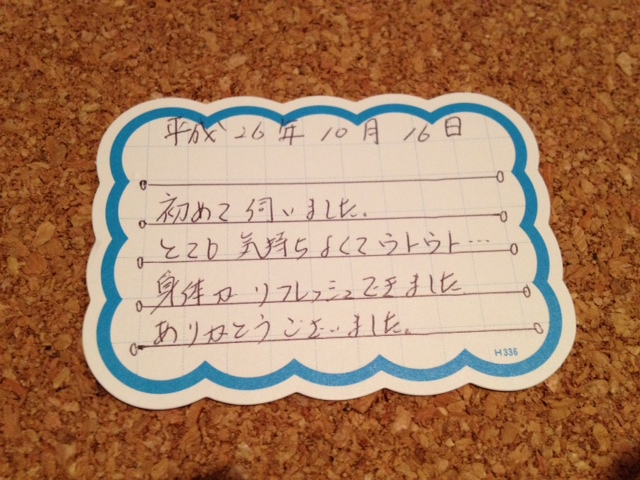 平成26年10月16日
初めて伺いました。
とても気持ちよくてウトウト…
身体がリフレッシュできました
ありがとうございました。
H336